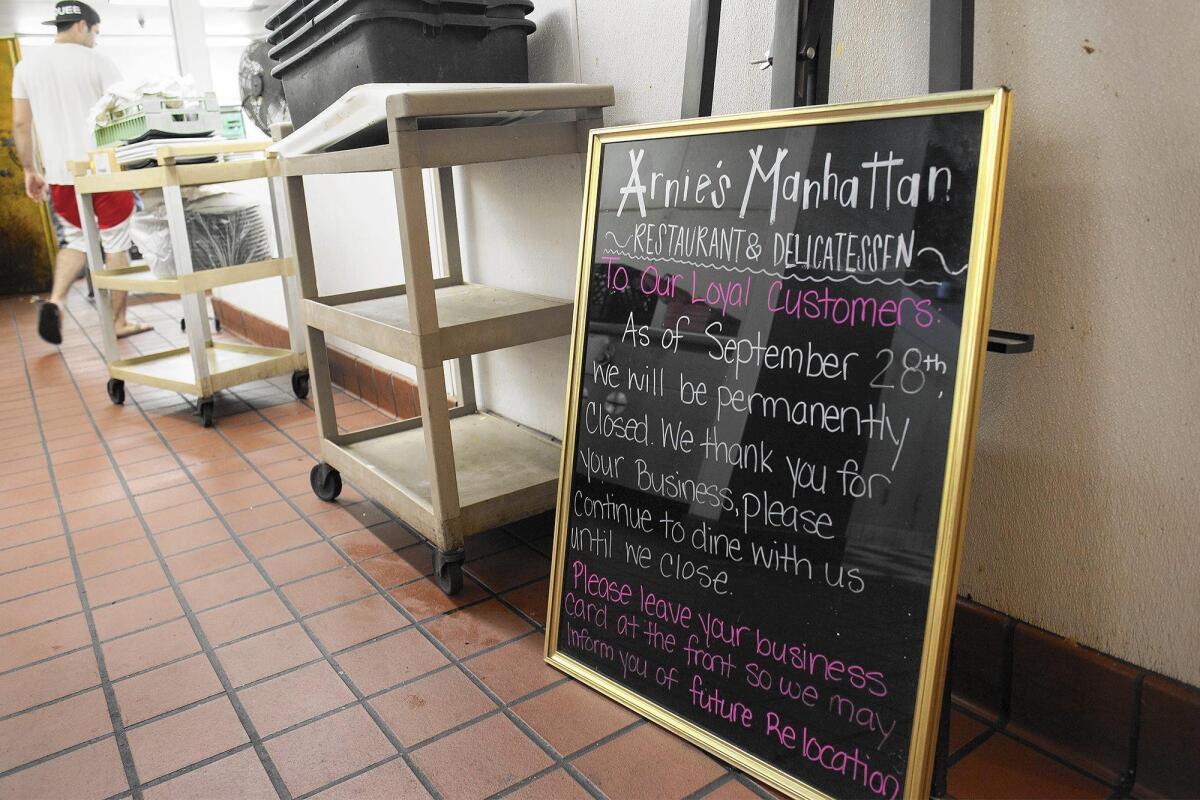 Arnie's Manhattan
RESTAURANT & DELICATESSEN
To Our Loyal Customers:
As of September 28th,
we will be permanently
Closed. We thank you for
your Business, please
continue to dine with us
until we close.
Please leave your business
card at the front so we may
inform you of future Relocation